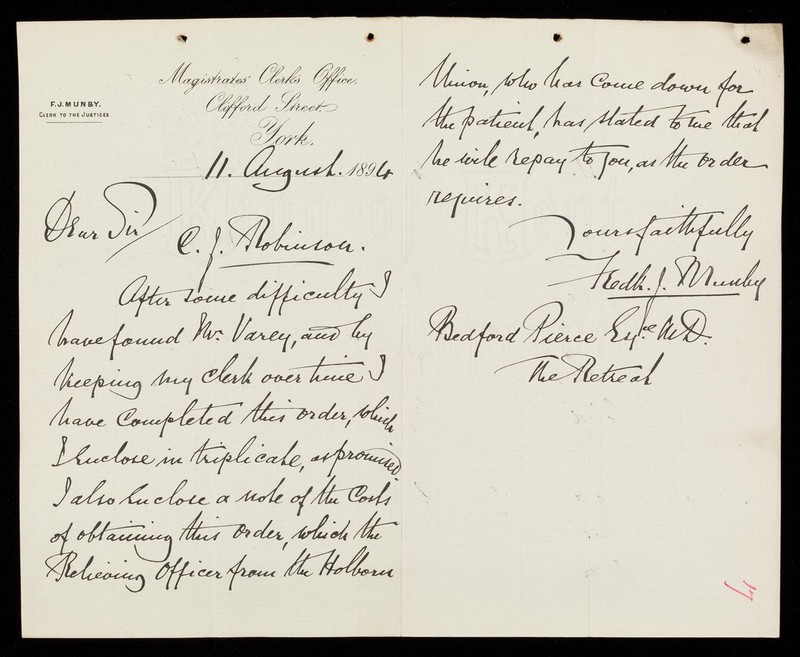 F.J. MUNBY.
CLERK TO THE JUSTICES.
Magistrates' Clerk's Office,
Clifford Street,
York,
11. August. 1894
Dear Sir/
C. J. Robinson.
After some difficulty I
have found Mr. Varey, and by
keeping my clerk over time I
have completed this order, which
I enclose in triplicate, as promised.
I also enclose a note of the Costs
of obtaining this order, which the
Relieving Officer from the Holborn
Union, who has come down for
the patient, has stated to me that
he will repay to you, as the order
requires.
Yours faithfully
Fredk. J. Munby
Bedford Pierce Esqre M.D.
The Retreat